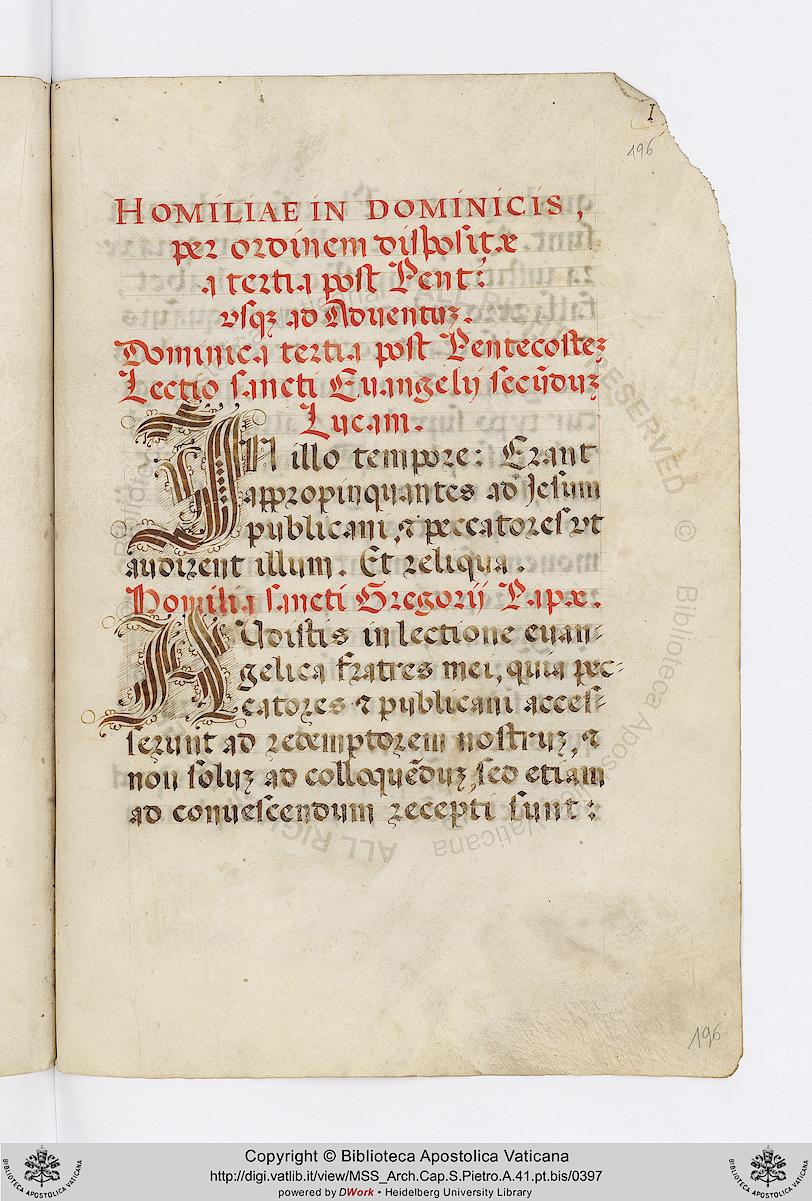 I
196
HOMILIAE IN DOMINICIS,
per ordinem dispositæ
a tertia post Pent:
vsqꝫ ad Aduentuꝫ.
Dominica tertia post Pentecosteꝫ
Lectio sancti Euangelij secūduꝫ
Lucam.
IN illo tempore: Erant
appropinquantes ad Jesum
publicani, & peccatores vt
audirent illum. Et reliqua.
Homilia sancti Gregorij Papæ.
AVdistis in lectione euan-
gelica fratres mei, quia pec-
catores & publicani acces-
serunt ad redemptorem nostruꝫ, &
non soluꝫ ad colloquēduꝫ, sed etiam
ad conuescendum recepti sunt:
196
Copyright © Biblioteca Apostolica Vaticana
http://digi.vatlib.it/view/MSS_Arch.Cap.S.Pietro.A.41.pt.bis/0397
powered by DWork • Heidelberg University Library
BIBLIOTECA APOSTOLICA VATICANA
BIBLIOTECA APOSTOLICA VATICANA